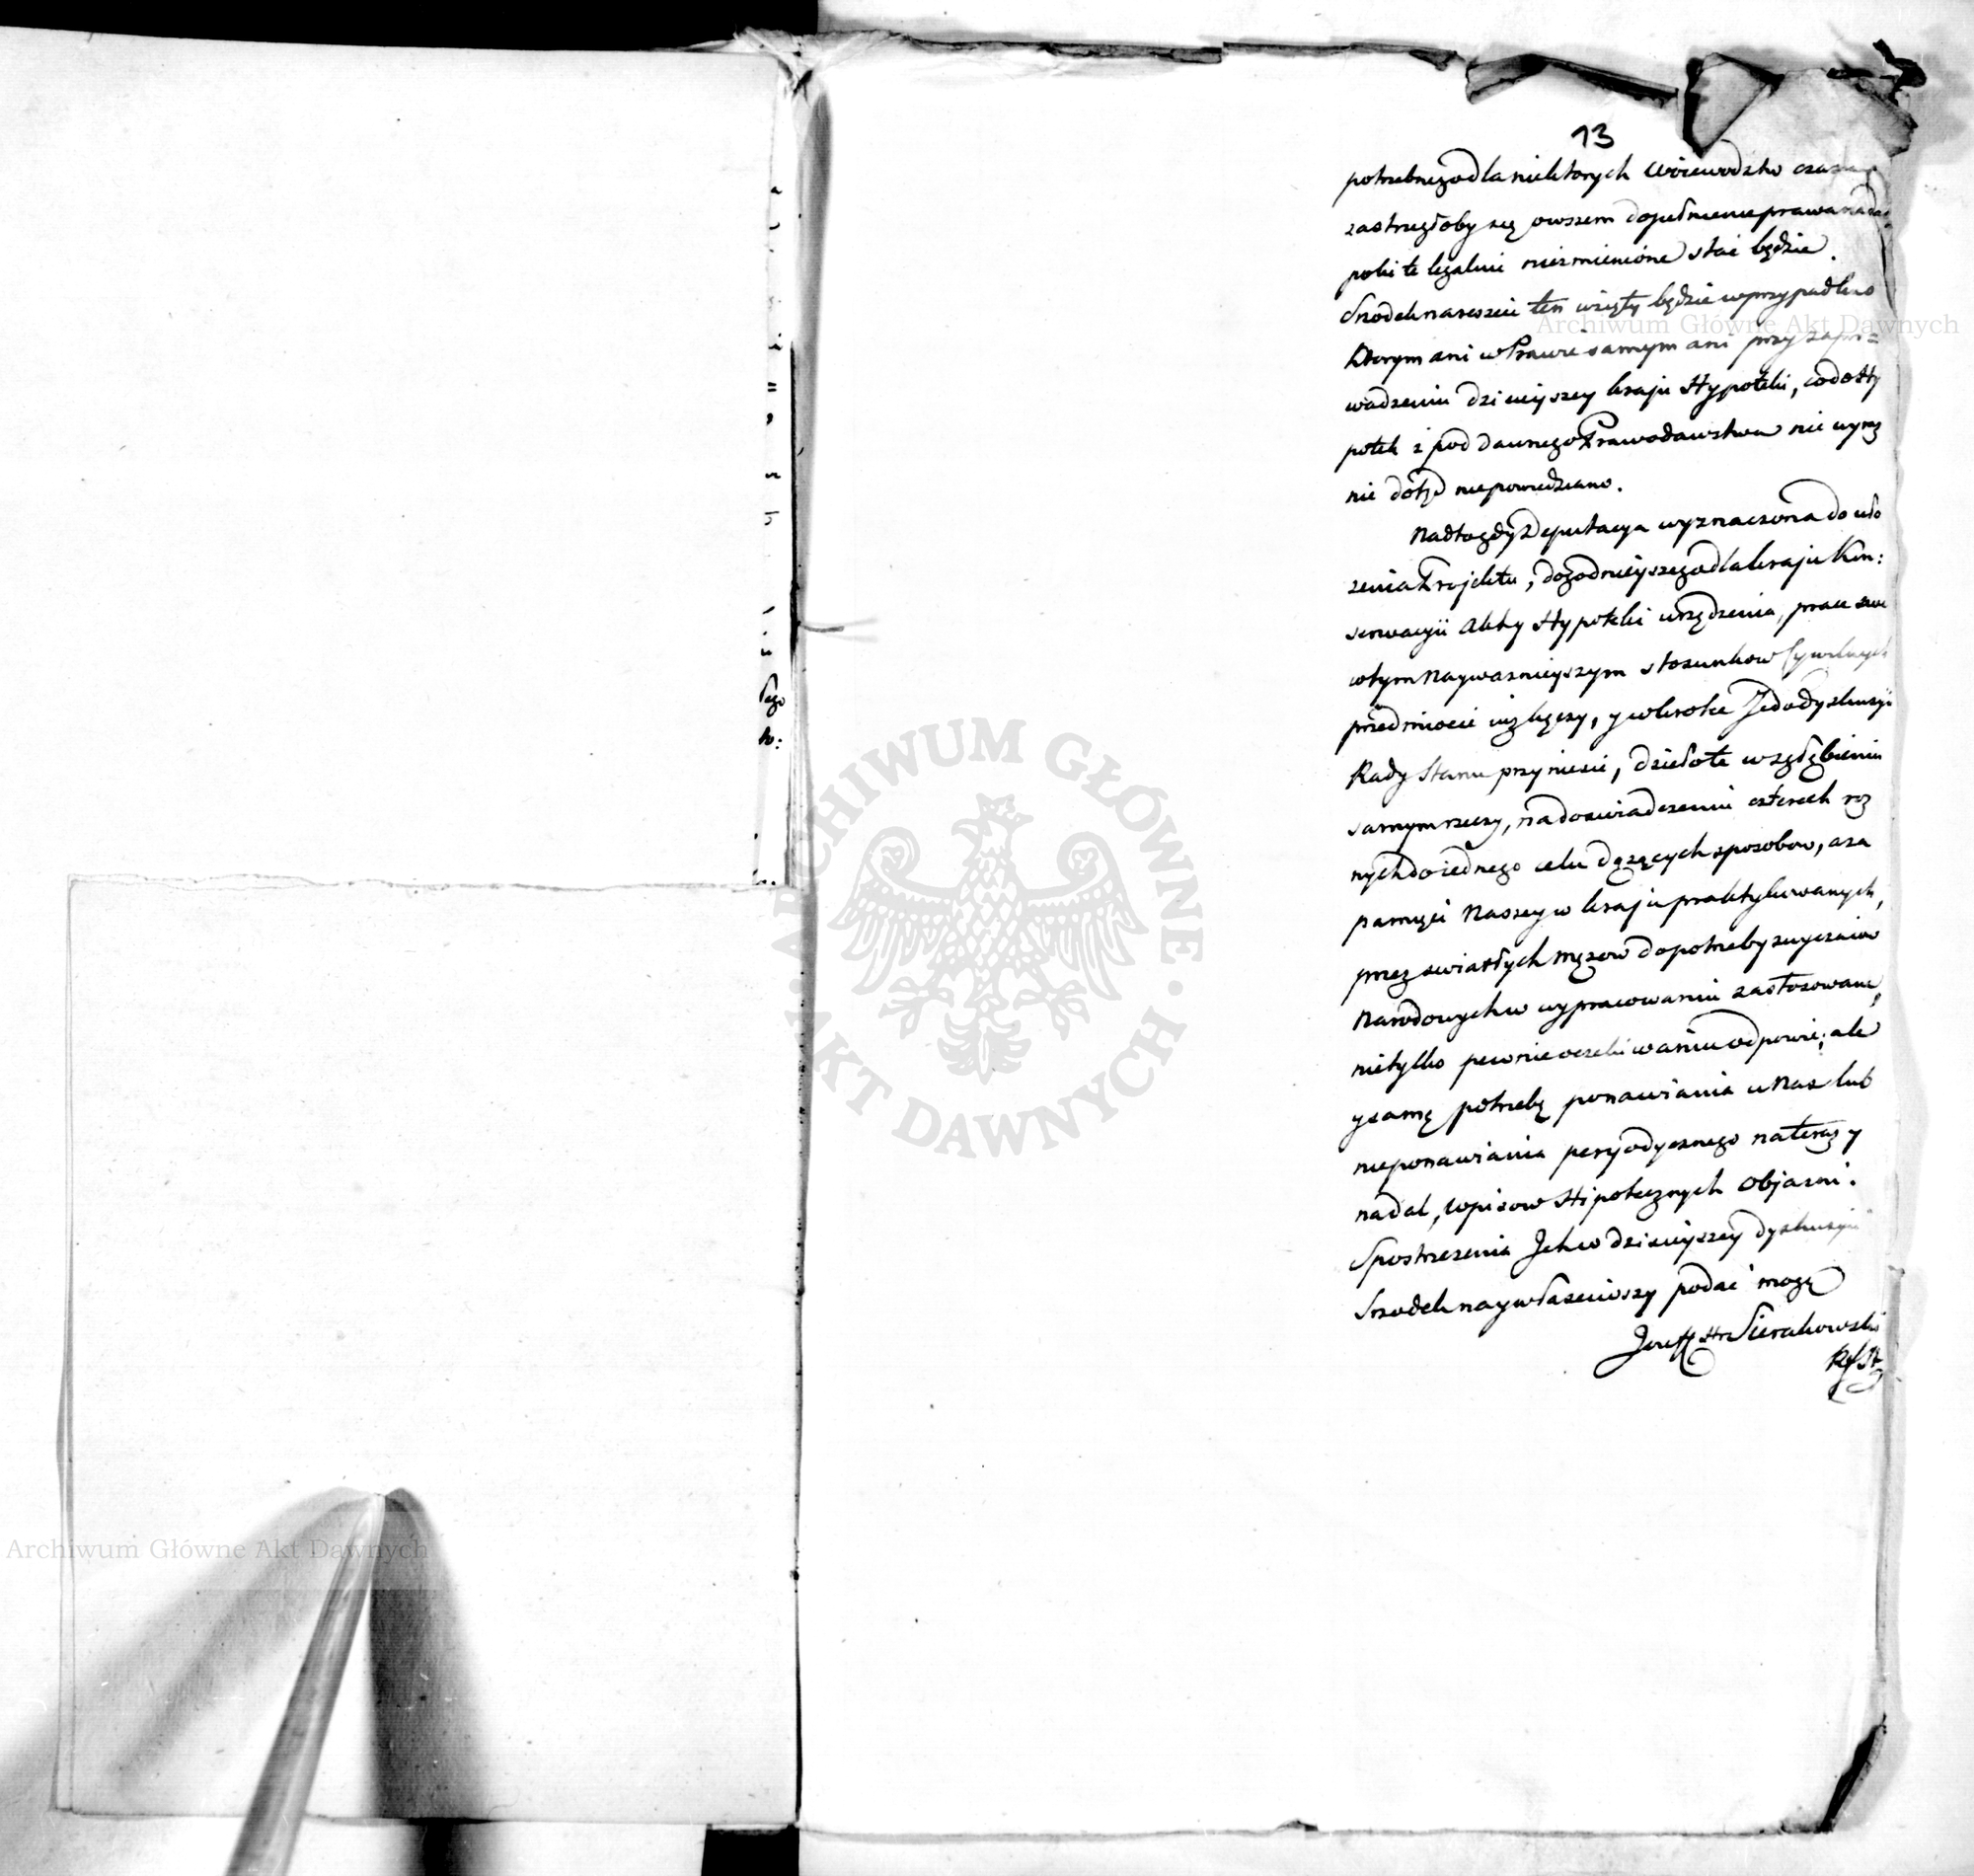 13
potrzebnego dla niektorych Woiewodztw czasu
zastrzegłoby się owszem dopełnienie prawa
poki te legalnie niezmienióne stać będzie.
Srzodek nareszcie ten wzięty będzie w przypadku
Ktorym ani w Prawie samym ani przy zapro=
wadzeniu dzisieyszey kraju Hypoteki, co do Hy
potek z pod dawnego Prawodawstwa nie wyraź
nie dotąd niepowiedziano.
Nadto gdy Deputacya wyznaczona do uło
żenia Projektu, dogodnieyszego dla kraju Kon:
serwacyi Akty Hypoteki urządzenia, prace swe
w tym nayważnieyszym stosunkow Cywilnych
przedmiocie iuż łączy, y wkrotce Je do dyskusyi
Rady Stanu przyniesie, dzieło te w zgłębieniu
samym rzeczy, na doświadczeniu czterech roż
nych do iednego celu dążących sposobow, a za
pamięci Naszey w kraju praktykowanych,
przez swiatłych mężow do potrzeby zwyczaiow
Narodowych w wypracowaniu zastosowane,
nietylko pewnie oczekiwaniu odpowie; ale
y samę potrzebę ponawiania u Nas lub
nieponawiania peryodycznego na teraz y
nadal, wpisow Hipotecznych objasni.
Spostrzeżenia Jch w dzisieyszey dyskusyi
Srzodek naywłaściwszy podać mogą
Jozeff Hr Sierakowski
R St
ARCHIWUM GŁÓWNE · AKT DAWNYCH ·
Archiwum Główne Akt Dawnych
Archiwum Główne Akt Dawnych